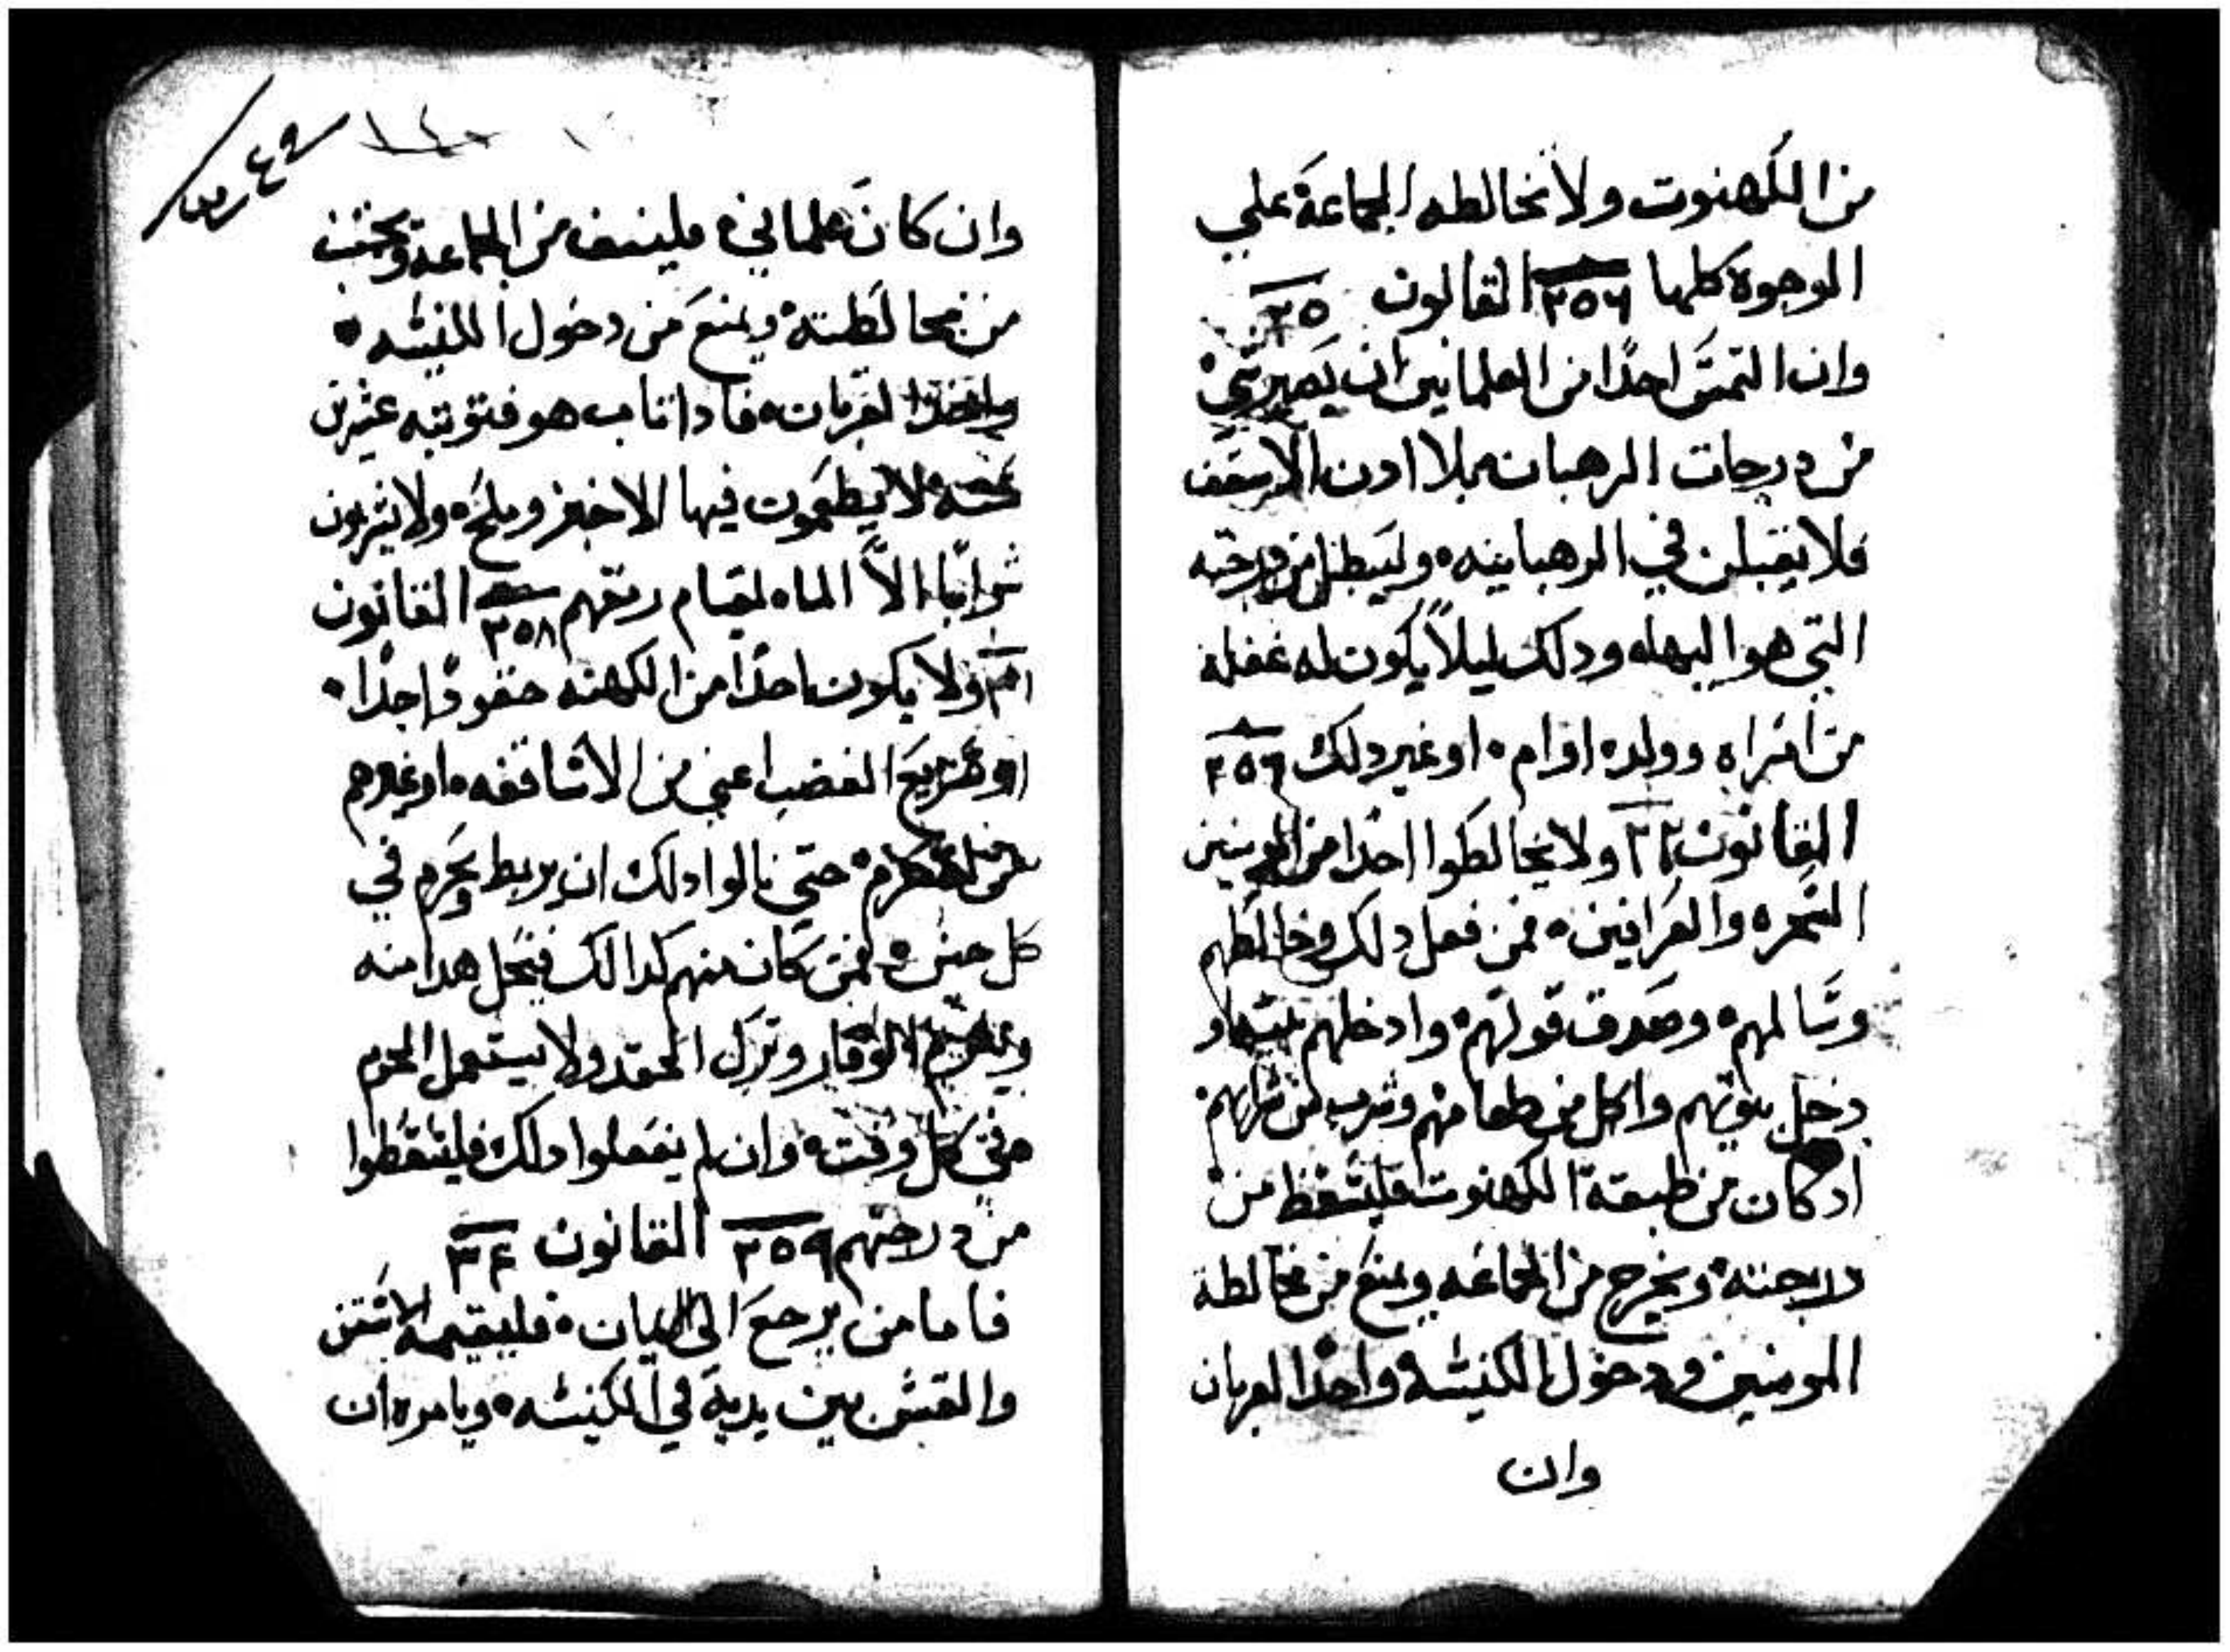 من الكهنوت ولا نخالطه الجماعة علي
الوجوة كلها ٢٥٦ القانون ٢٥
وان التمس احدًا من العلمانيين ان يصير شي
من درجات الرهبان بلا ادن الاسقف
فلا يقبلن في الرهبانيه وليبطل من درجته
التي هو اليها ودلك ليلاً يكون له غفله
من امراه وولده اوام او غير دلك
القانون ولا يخالطوا احدًا من المومنين
السحره والعرافين فمن فعل دلك وخالطهم
وسالمهم وصدق قولهم وادخلهم بيته او
دخل بيوتهم واكل من طعامهم وشرب من شرابهم
ادكان من طبقة الكهنوت فليسقط من
درجته ويخرج من الجماعه ويمنع من مخالطة
المومنين ودخول الكنيسه واخدا القربان
وان
وان كان علماني فلينف من الجماعة ويجتنب
من مخالطته ويمنع من دخول الكنيسه
القربان فادا تاب هو فتوبته عشرين
سنه لا يطعمون فيها الا خبز وملح ولا يشربون
شرابًا الاً الماء لقيام رمقهم ٢٥٨ القانون
ولا يكون احدًا من الكهنه حقودًا جدًا
او سريع الغضب اعني من الاساقفه او غيرهم
حتي نالوا دلك ان يربط ويحرم في
كل حين فمن كان منهم كدالك فينحل هدا منه
الوقار وترك الحقد ولا يستعمل الحرم
في كل وقت وان لم يفعلوا دلك فليسقطوا
من درجتهم ٢٥٩ القانون ٣٤
فاما من يرجع الي اليان فليقيمه الاسقف
والقسس بين يدية في الكنيسه ويامره ان